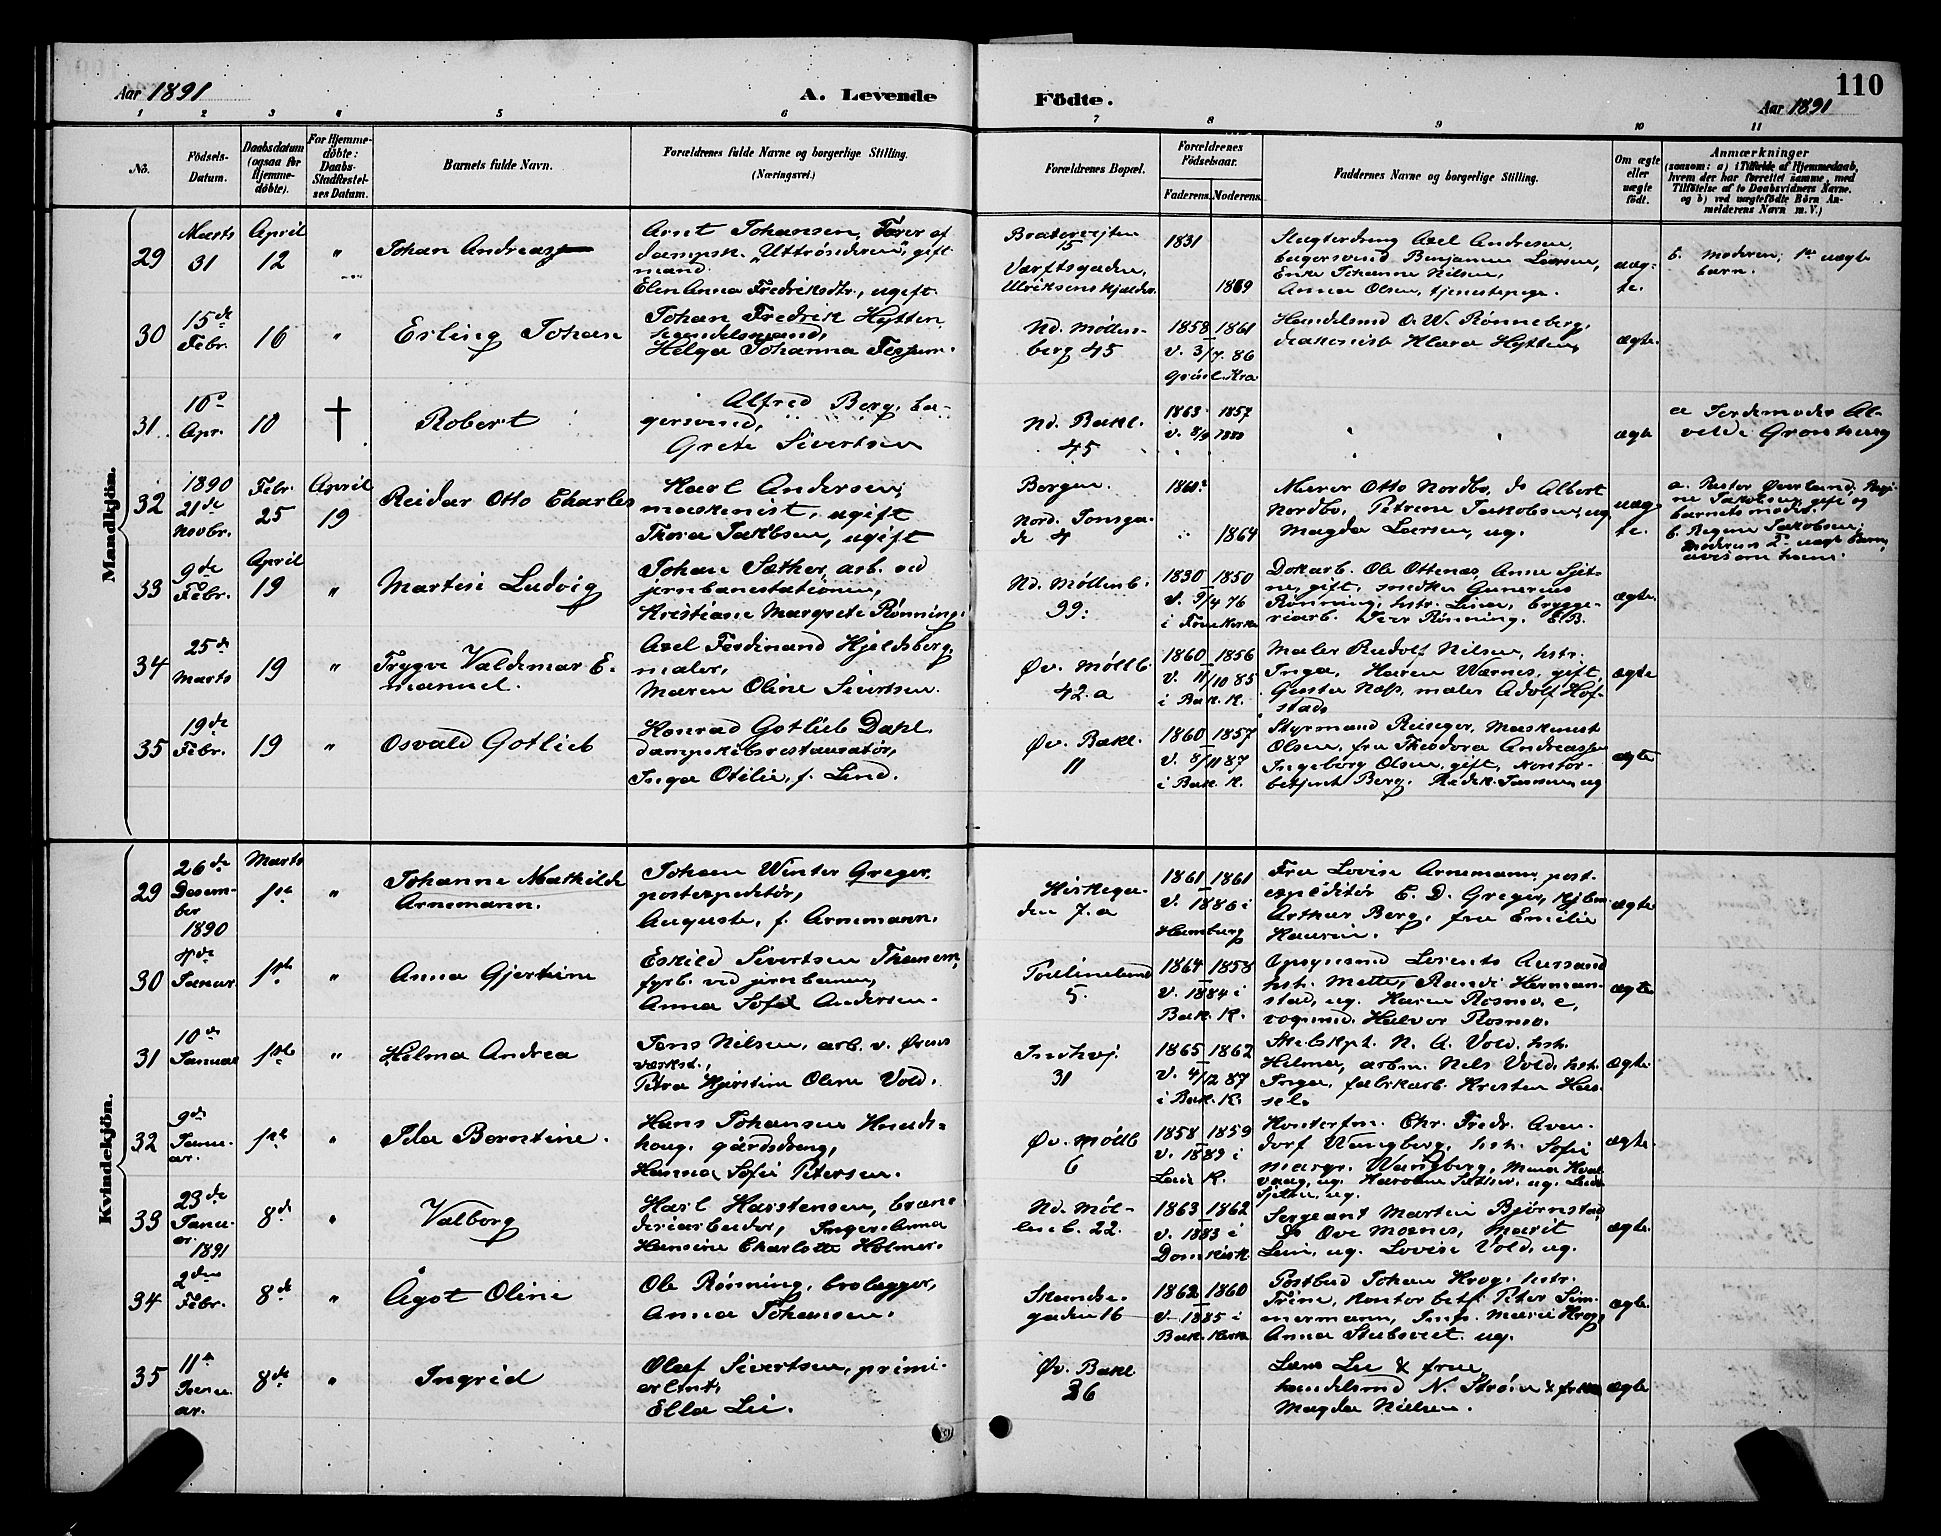 Aar 1891
A. Levende
Fødte.
Aar 1891
110
1 2 3 4 5 6 7 8 9 10 11
No.
Fødsels-
Datum.
Daabsdatum
(ogsaa for
Hjemme-
døbte).
For Hjemme-
døbte:
Daabs-
Stadfæstel-
ses Datum.
Barnets fulde Navn.
Forældrenes fulde Navne og borgerlige Stilling.
(Næringsvei.)
Forældrenes Bopæl.
Forældrenes
Fødselsaar.
Faderens. Moderens.
Faddernes Navne og borgerlige Stilling.
Om ægte
eller
uægte
født.
Anmærkninger
(saasom: a) i Tilfælde af Hjemmedaab,
hvem der har forrettet samme, med
Tilføielse af to Daabsvidners Navne.
og b) ved uægtefødte Børn An-
melderens Navn m. V.)
Mandkjøn.
29
Marts
31
April
12
"
Johan Andreas
Arnt Johansen, Fører af
dampsk. "Uttrønderen", gift
mand.
Elen Anna Fredriksdtr., ugift.
15
Værftsgaden,
Ulriksens kjelder.
1831
1869
Slagterdreng Axel Andresen,
bagersvend Benjamin Larsen,
Enke Johanne Nilsen,
Anna Olsen, tjenestepige.
uæg-
te.
b. Moderen; 1ste uægte
barn.
30
15de
Febr.
16
"
Erling Johan
Johan Fredrik Hytten,
handelsmand,
Helga Johanna
Nd. Møllen-
berg 45
1858 1861
v. 3/7. 86
Kra
Handelsmd O. W. Rønneberg,
diakonisse Klara Hytten,
ægte.
31
10de
Apr.
10
†
Robert
Alfred Berg, ba-
gersvend,
Grete Sivertsen
Nd. Bakl.
45
1863 1857
v. 8/9 1889
" "
ægte
a Jordemoder Al-
velde Grønberg
32
1890
21de
Novbr.
Febr.
25
April
19
Reidar Otto Charles
Karl Andersen,
maskinist, ugift
Thora Jakobsen, ugift
Bergen.
Nord. Tonsga-
de 4
1860?
" 1864
Murer Otto Nordbo, do Albert
Nordbo, Petrine Jakobsen, ug
Magda Larsen, ug.
uæg-
te.
a. Pastor Øverland. Regi-
ne Jakobsen, gift og
barnets moder.
b. Regine Jakobsen;
Moderens 2det uægte barn,
33
9de
Febr.
April
19
"
Martin Ludvig
Johan Sæther, arb. ved
jernbanestationen,
Kristiane Margrete Rønning.
Nd. Møllenb.
99.
1830 1850
v. 9/4 76
i Frue Kirke
Dokarb. Ole Ottenæs, Anne
gift, snedker Gunerius
Rønning, hstr. Lina, brygge-
riarb. Peer Rønning.
ægte.
34
25de
Marts
19
"
Trygve Valdemar E-
manuel.
Axel Ferdinand Hjeldsberg,
maler,
Maren Oline Sivertsen.
Øv. Møllb.
42.a
1860 1856
v. 11/10 85
i Bak. K.
Maler Rudolf Nilsen, hstr.
Inga, Karen Wærnes, gift,
Gusta Næss, maler Adolf Hof-
stad.
ægte
35
19de
Febr.
19
"
Osvald Gotlieb
Konrad Gotlieb Dahl
dampskibsrestauratør,
Inga Otilie, f. Lind.
Øv. Bakl.
11
1860 1857
v. 5/11 87
i Bak. K.
Styrmand Reiseger, Maskinist
Olsen, fru Theodora Andreassen
Ingeborg Olsen, gift, Kontor-
betjent Berg,
ægte
Kvindekjøn.
29
26de
Desem-
ber
1890
Marts
1ste
"
Johanne Mathilde
Arnemann.
Johan Winter Greger,
postexpeditør,
Auguste, f. Arnemann.
Kirkega-
den 7.a
1861 1861
v. 1886 i
Hamburg
Fru Lovise Arnemann, post-
expeditør C. D. Greger, Kjbm
Arthur Berg, fru Emilie
ægte
30
4de
Januar
1ste
"
Anna Gjertine
Eskild Sivertsen
fyrb. ved jernbanen,
Anna Sofie Andersen.
Paulinelund
5.
1864 1858
v. 1884 i
Bak. K.
Opsynsmd Lorents Aursand
hst. Mette, Randi Herman-
stad, ug. Karen Rosmo, e,
vognmd. Halvor Rosmo.
ægte
31
10de
Januar
1ste
"
Hilma Andrea
Jens Nilsen, arb. v. Ørens
værkst.,
Petra Kjerstine Oline Vold.
31
1865 1862
v. 4/12 87
i Bak. K.
Skibskpt. N. A. Vold, hst.
Helmer, arbm. Nels Vold, hst.
Inga, fabrikarb. Kristen Has-
sel.
ægte.
32
9de
Janu-
ar.
1ste
"
Ida Berntine.
Hans Johansen
haug, gårdsdreng,
Hanna Sofie Petersen.
Øv. Møllb
6
1858 1859
v. 1889 i
K.
Chr. Fredr. Aven-
dorf Wangberg, hst. Sofie
Margr. Wangberg,
ug.
ægte.
33
23de
Janu-
ar.
1891
8de
"
Valborg
Karl Karstensen, bræn-
deriarbeider, Inger Anna
Hansine Charlotte Holmer.
Nd. Møl-
lenb. 22.
1863 1862
v. 1883 i
Domkirk.
Sergeant Martin Bjørnstad
Do Ove Moanes, Marit
Lein, ug. Lovise Vold, ug.
ægte.
34
2den
Febr.
8de
"
Ågot Oline
Ole Rønning, brolægger,
Anna Johansen.
gaden 16
1862 1860
v. 1885 i
Bak. Kirke
Postbud Johan Krog, hstr.
Trine, kontorbetj. Peter Sim-
mermann, Marie Krog,
Anna Stubsveet. ug.
ægte.
35
11te
Janu-
ar.
8de
"
Ingrid
Olaf Sivertsen, premi-
erlint,
Ella Lie.
Øv. Bakl
26
Lars Lie & frue,
handelsmd N. Strøm & frue
Magda Nielsen.
ægte